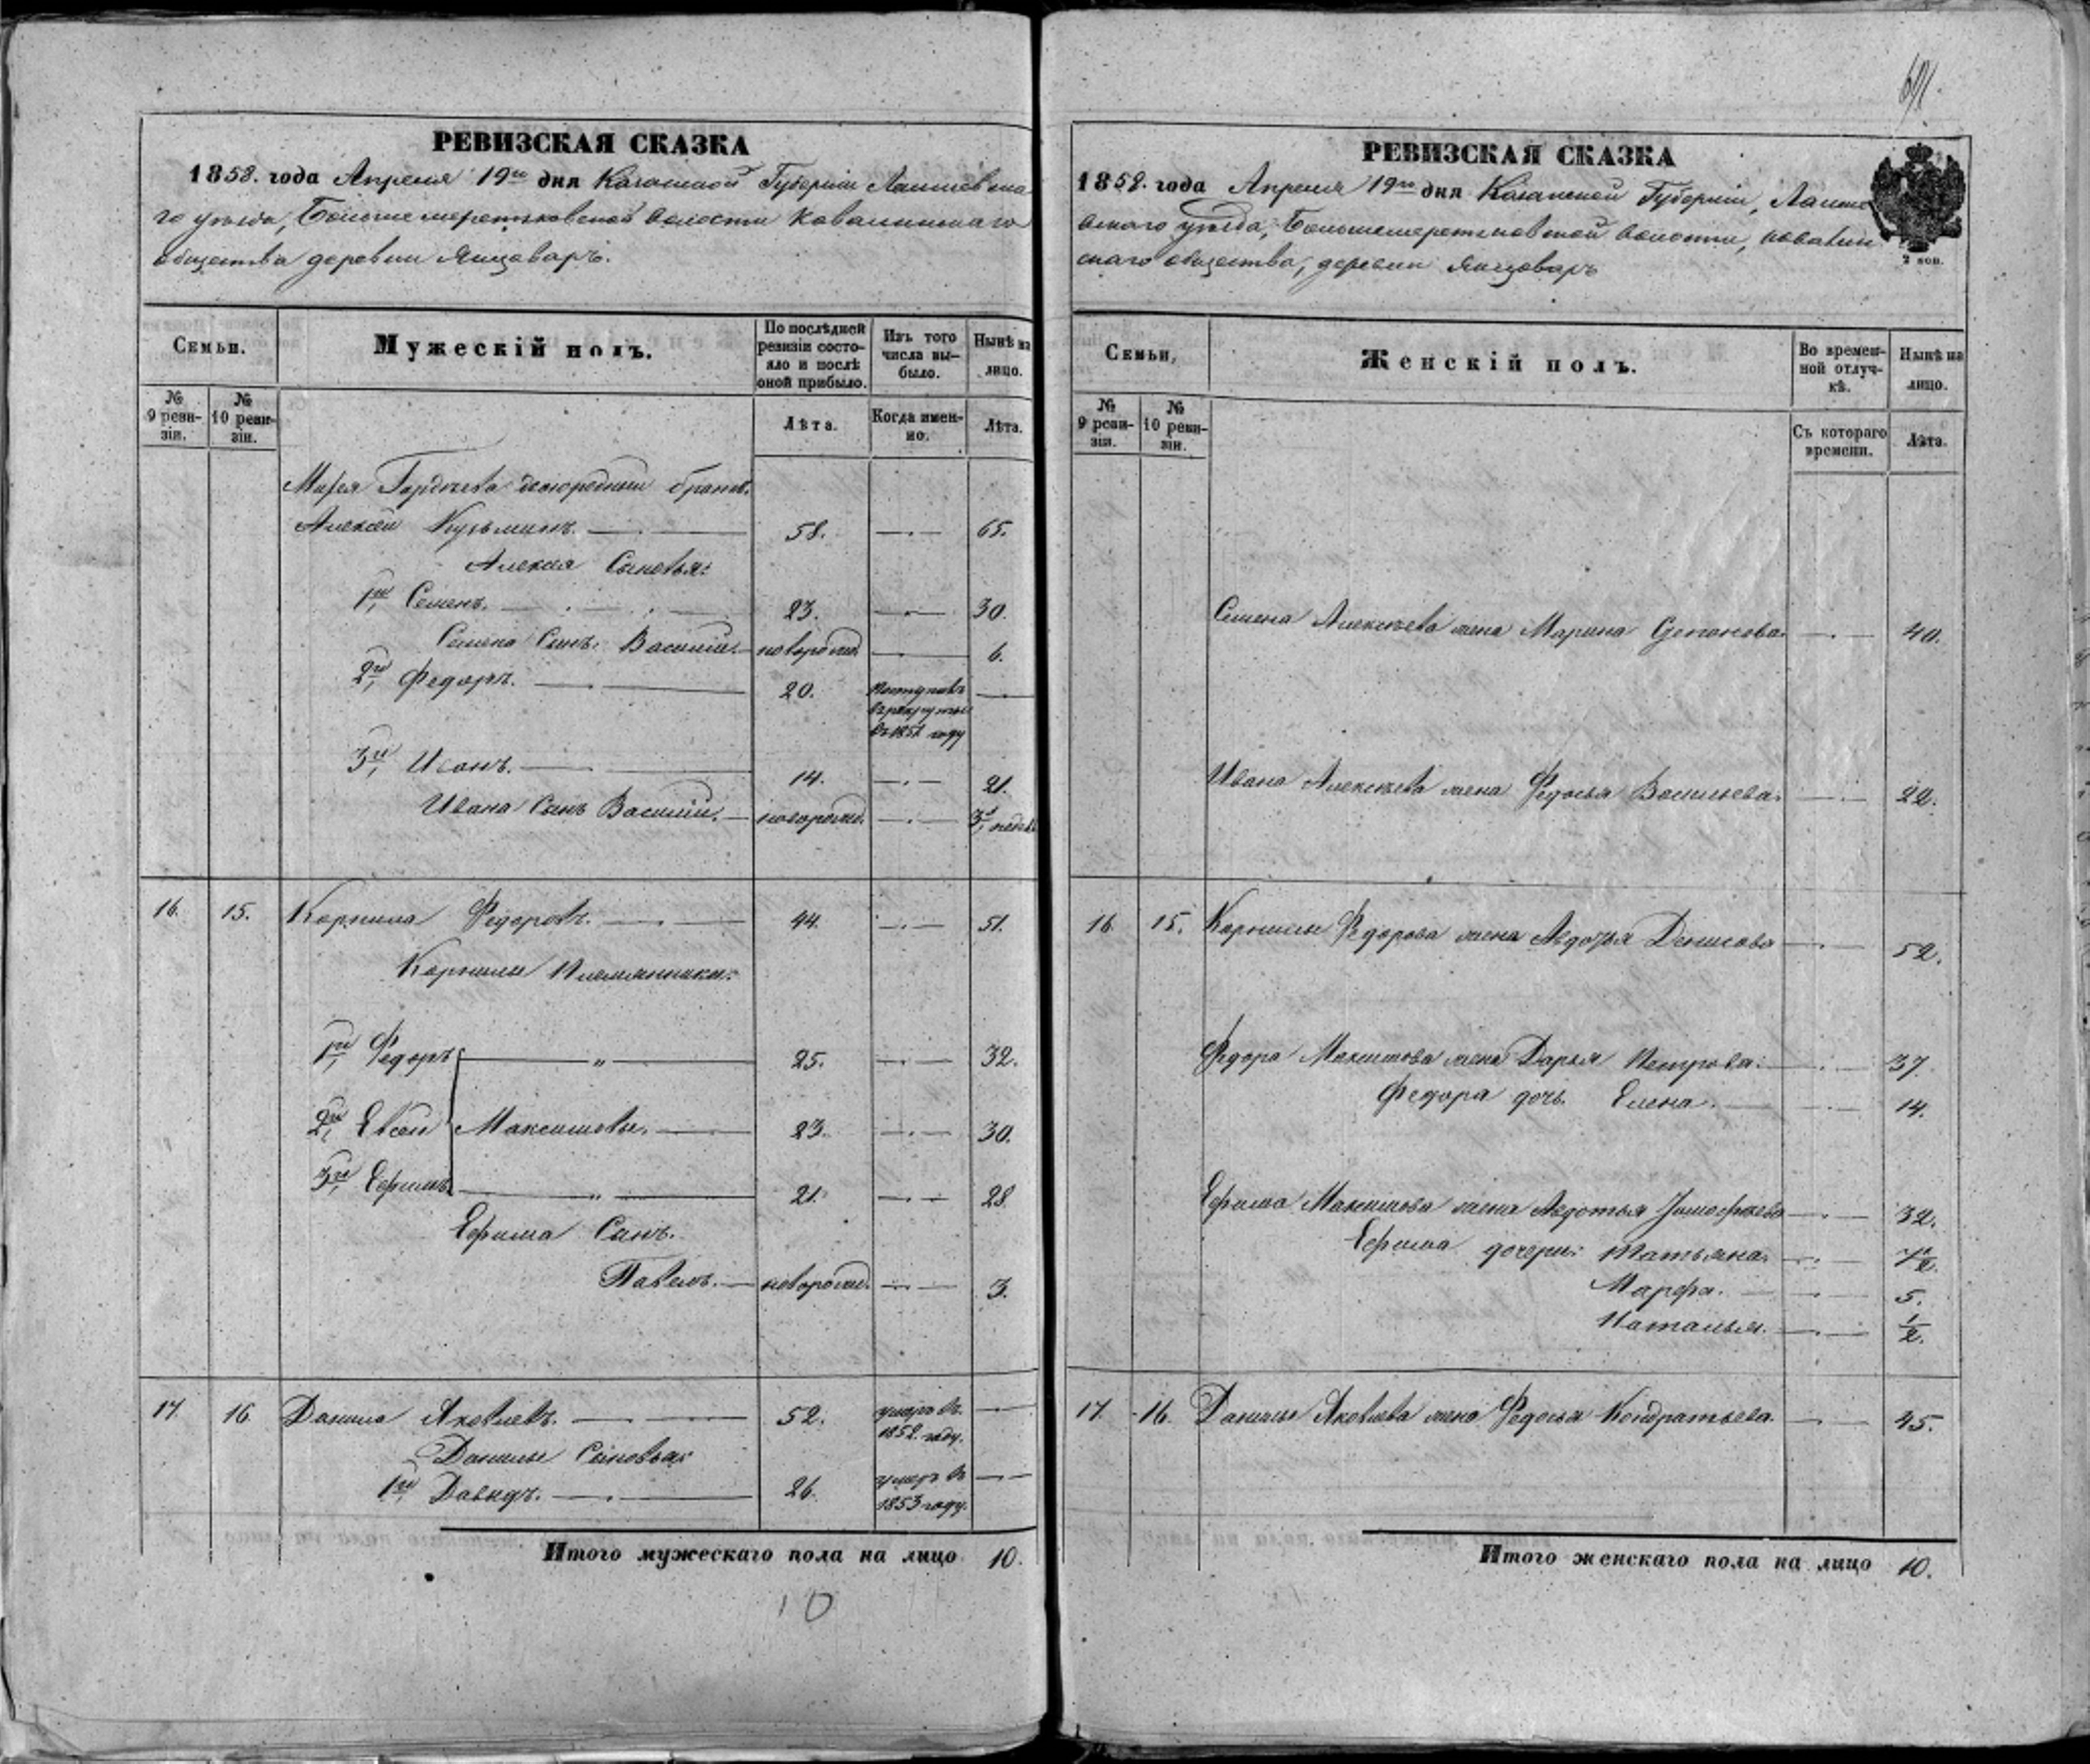 РЕВИЗСКАЯ СКАЗКА
1858. года Апреля 19го дня Казанской Губернiи Лаишевска
го уѣзда, Большемеретяковской волости Ковалинскаго
общества деревни Янцоваръ.
Семьи.
Мужескiй полъ.
По послѣдней
ревизiи состо-
яло и послѣ
оной прибыло.
Изъ того
числа вы-
было.
Нынѣ на
лицо.
№
9 реви-
зiи.
№
10 реви-
зiи.
Лѣта.
Когда имен-
но.
Лѣта.
Гордѣева двоюродный братъ.
Алексѣй Кузьминъ. 58. 65.
Алексѣя Сыновья:
1й, Семенъ. 23. 30.
Семена Сынъ: Василiй. новорожд. 6.
2й, Федоръ. 20. поступилъ
въ рекруты
въ 185 году
3й, Иванъ. 14. 21.
Ивана Сынъ Василiй. новорожд. 3 недѣл
16. 15. Корнила Федоровъ. 44. 51.
Корнилы Племянники:
1й, Федоръ 25. 32.
2й, Евсей Максимовы. 23. 30.
3й, Ефимъ 21. 28
Ефима Сынъ.
Павелъ. новорожд. 3.
17. 16. Данила Яковлевъ. 52. умеръ въ
1852 году.
Данилы Сыновья:
1й, Давыдъ. 26. умеръ въ
1853 году.
Итого мужескаго пола на лицо 10.
10
РЕВИЗСКАЯ СКАЗКА
1858. года Апреля 19го дня Казанской Губернiи, Лаише
вскаго уѣзда, Большемеретяковской волости, Ковалин
скаго общества, деревни Янцоваръ
2 коп.
Семьи,
Женскiй полъ.
Во времен-
ной отлуч-
кѣ.
Нынѣ на
лицо.
№
9 реви-
зiи.
№
10 реви-
зiи.
Съ котораго
времени.
Лѣта.
Семена Алексѣева жена Марина Степанова. 40.
Ивана Алексѣева жена Федосья Васильева. 22.
16 15. Корнилы Федорова жена Авдотья Денисова 52.
Федора Максимова жена Дарья Петрова. 37.
Федора дочь Елена. 14.
Ефима Максимова жена Авдотья Тимофеева 32.
Ефима дочери: Татьяна. 7½.
Марфа. 5.
Наталья. ½.
17. 16. Данилы Яковлева жена Федосья Кондратьева. 45.
Итого женскаго пола на лицо 10.